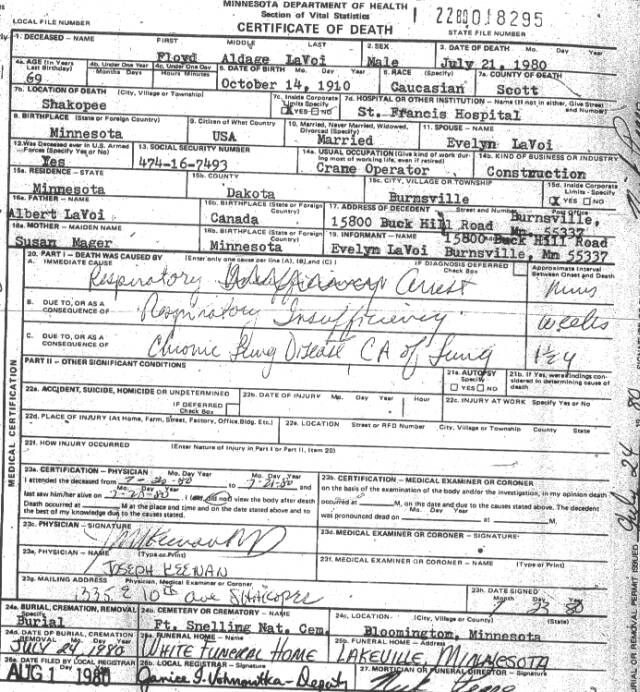 MINNESOTA DEPARTMENT OF HEALTH
Section of Vital Statistics
CERTIFICATE OF DEATH
LOCAL FILE NUMBER
STATE FILE NUMBER
1. DECEASED – NAME FIRST MIDDLE LAST 2. SEX 3. DATE OF DEATH Mo. Day Year
Floyd Aldage LaVoi Male July 21, 1980
4a. AGE (In Years Last Birthday) 4b. Under One Year Months Days 4c. Under One Day Hours Minutes 5. DATE OF BIRTH Mo. Day Year 6. RACE (Specify) 7a. COUNTY OF DEATH
69 October 14, 1910 Caucasian Scott
7b. LOCATION OF DEATH (City, Village or Township) 7c. Inside Corporate Limits Specify 7d. HOSPITAL OR OTHER INSTITUTION – Name (If not in either, Give Street and Number)
Shakopee YES NO St. Francis Hospital
8. BIRTHPLACE (State or Foreign Country) 9. Citizen of What Country 10. Married, Never Married, Widowed, Divorced (Specify) 11. SPOUSE – Name
Minnesota USA Married Evelyn LaVoi
12. Was Deceased ever in U.S. Armed Forces (Specify Yes or No) 13. SOCIAL SECURITY NUMBER 14a. USUAL OCCUPATION (Give kind of work during most of working life, even if retired) 14b. KIND OF BUSINESS OR INDUSTRY
Yes 474-16-7493 Crane Operator Construction
15a. RESIDENCE – STATE 15b. COUNTY 15c. CITY, VILLAGE OR TOWNSHIP 15d. Inside Corporate Limits – Specify
Minnesota Dakota Burnsville YES NO
16a. FATHER – NAME 16b. BIRTHPLACE (State or Foreign Country) 17. ADDRESS OF DECEDENT Street and Number Post Office
Albert LaVoi Canada 15800 Buck Hill Road Burnsville, Mn. 55337
18a. MOTHER – MAIDEN NAME 18b. BIRTHPLACE (State or Foreign Country) 19. INFORMANT – NAME 15800 Buck Hill Road
Susan Mager Minnesota Evelyn LaVoi Burnsville, Mn 55337
20. PART I – DEATH WAS CAUSED BY (Enter only one cause per line (A), (B), and (C)) IF DIAGNOSIS DEFERRED Check Box Approximate Interval Between Onset and Death
A. IMMEDIATE CAUSE Respiratory arrest mins
B. DUE TO, OR AS A CONSEQUENCE OF Respiratory Insufficiency weeks
C. DUE TO, OR AS A CONSEQUENCE OF Chronic Lung Disease CA of Lung 1½ y
PART II – OTHER SIGNIFICANT CONDITIONS 21a. AUTOPSY Specify YES NO 21b. If Yes, were findings considered in determining cause of death
22a. ACCIDENT, SUICIDE, HOMICIDE OR UNDETERMINED IF DEFERRED Check Box 22b. DATE OF INJURY Mo. Day Year Hour 22c. INJURY AT WORK Specify Yes or No
22d. PLACE OF INJURY (At Home, Farm, Street, Factory, Office, Bldg. Etc.) 22e. LOCATION Street or RFD Number City, Village or Township County State
22f. HOW INJURY OCCURRED (Enter Nature of Injury in Part I or Part II, Item 20)
MEDICAL CERTIFICATION
23a. CERTIFICATION – PHYSICIAN Mo. Day Year Mo. Day Year
I attended the deceased from to 7-21-80 and
last saw him/her alive on I (did) (did not) view the body after death
Death occurred at M at the place and time and on the date stated above and to
the best of my knowledge due to the causes stated.
23b. CERTIFICATION – MEDICAL EXAMINER OR CORONER
on the basis of the examination of the body and/or the investigation, in my opinion death
occurred at M, on the date and due to the causes stated above. The decedent
was pronounced dead on at M.
23c. PHYSICIAN – SIGNATURE 23d. MEDICAL EXAMINER OR CORONER – SIGNATURE
23e. PHYSICIAN – NAME (Type or Print) 23f. MEDICAL EXAMINER OR CORONER – NAME (Type or Print)
JOSEPH KEENAN
23g. MAILING ADDRESS Physician, Medical Examiner or Coroner 23h. DATE SIGNED Mo. Day Year
335 E 10th ave SHAKOPEE 7 23 80
24a. BURIAL, CREMATION, REMOVAL Specify 24b. CEMETERY OR CREMATORY – NAME 24c. LOCATION (City, Village or Township) (State)
Burial Ft. Snelling Nat. Cem. Bloomington, Minnesota
24d. DATE OF BURIAL, CREMATION REMOVAL Mo. Day Year 25a. FUNERAL HOME – Name 25b. FUNERAL HOME – Address
JULY 24, 1980 WHITE FUNERAL HOME LAKEVILLE MINNESOTA
26a. DATE FILED BY LOCAL REGISTRAR 26b. LOCAL REGISTRAR – Signature 27. MORTICIAN or FUNERAL DIRECTOR – Signature
AUG 1 1980